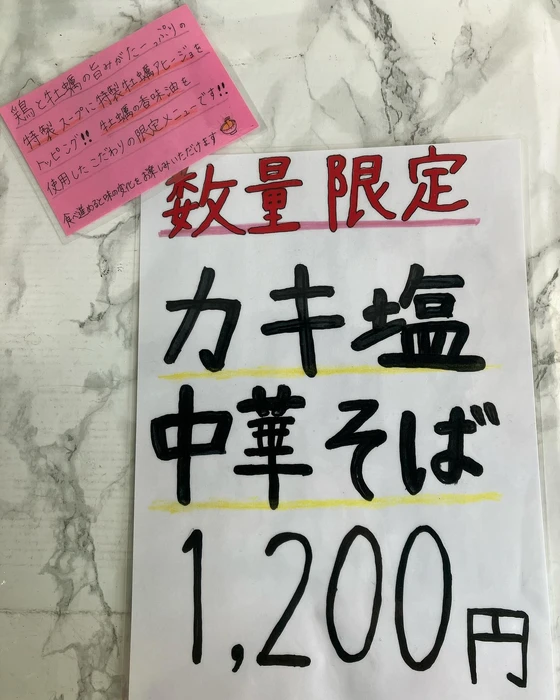 鶏と牡蠣の旨みがたーっぷりの
特製スープに特製牡蠣アヒージョを
トッピング!! 牡蠣の香味油を
使用したこだわりの限定メニューです!!
食べ進めると味の変化をお楽しみいただけます
数量限定
カキ塩
中華そば
1,200円